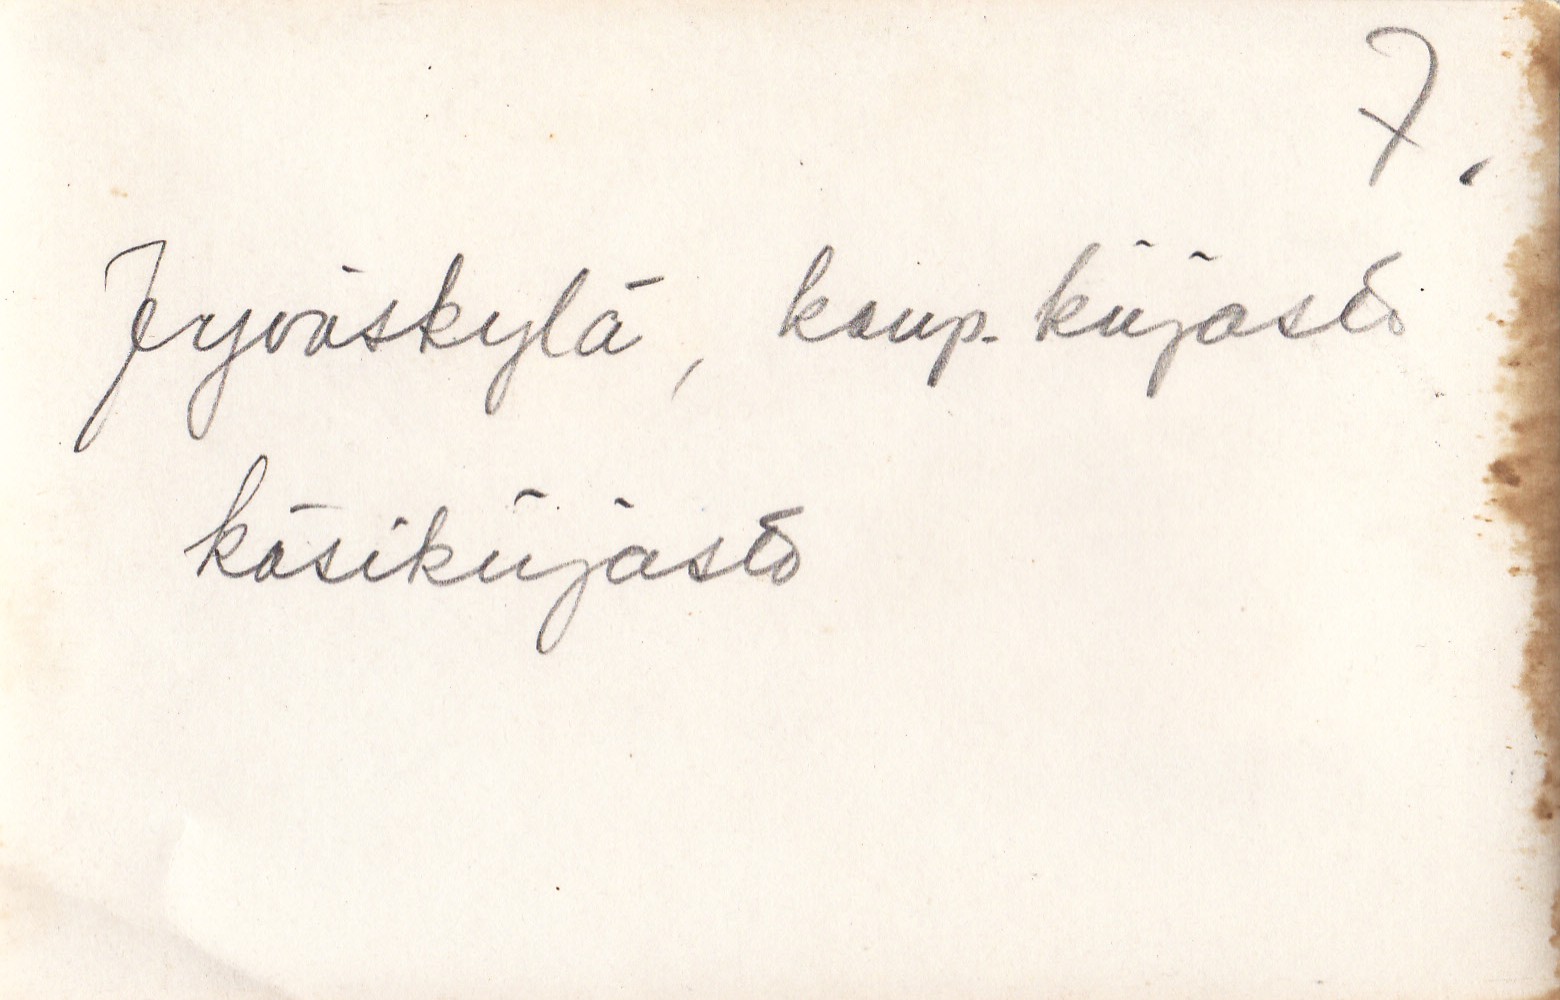 7.
Jyväskylä, kaup. kirjasto
käsikirjasto